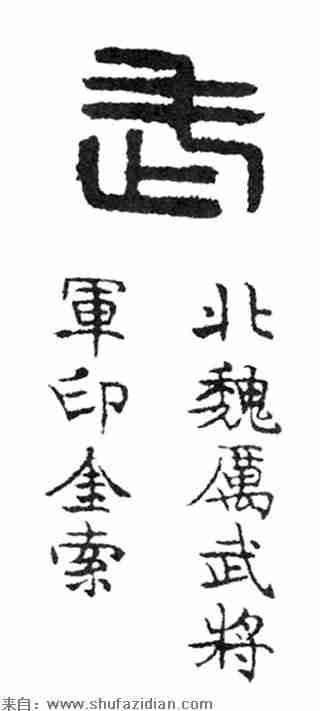 武
北魏厲武將
軍印金索
来自：www.shufazidian.com